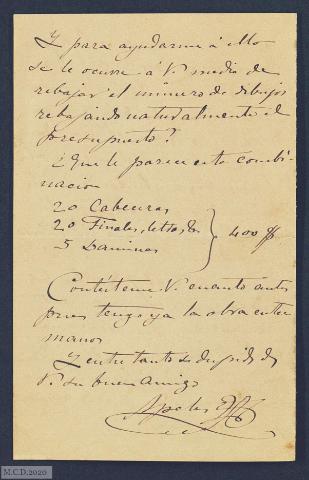 Y para ayudarme á ello
se le ocurre á V. medio de
rebajar el número de dibujos
rebajando naturalmente el
presupuesto?
¿Que le parece esta combi-
nacion
20 Cabeceras
20 Finales, letras, &
5 Laminas
400 $
Contésteme V. cuanto antes
pues tengo ya la obra entre
manos
Y entre tanto se despide de
V. su buen amigo
Apeles
M.C.D. 2020